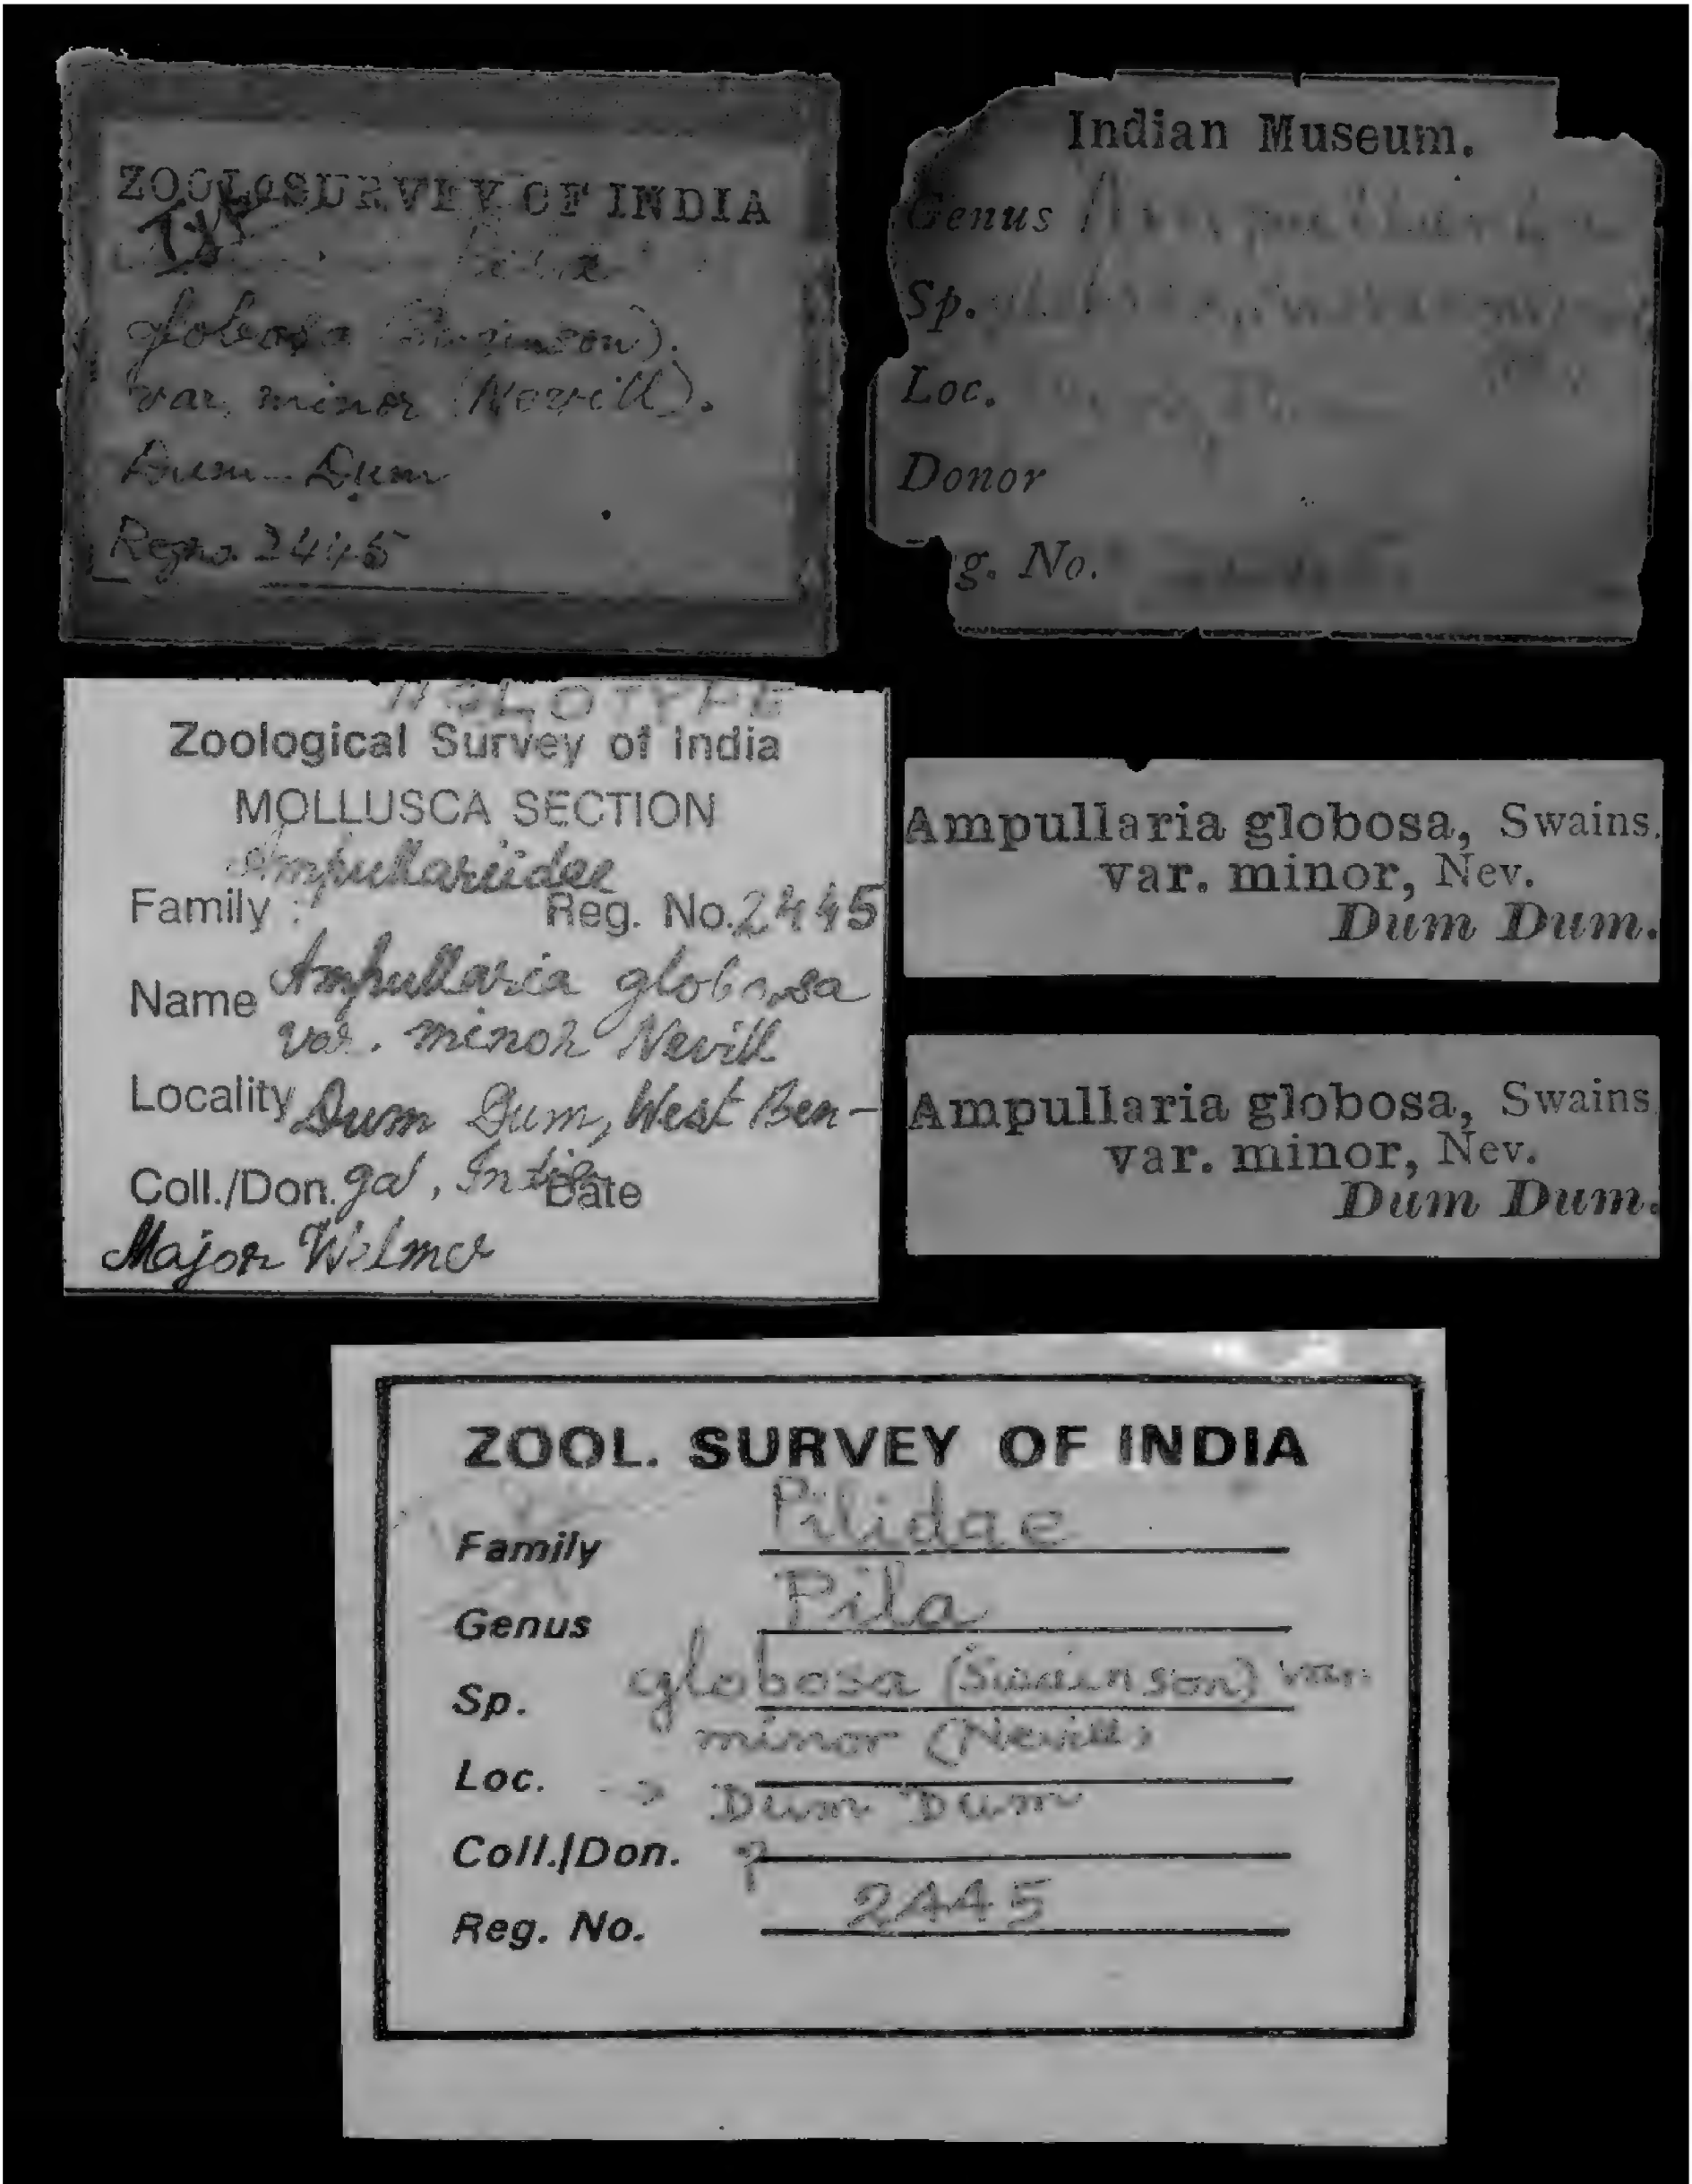 ZOOL. SURVEY OF INDIA
Type
Pila
globosa (Swainson).
var. minor (Nevill).
Dum-Dum
Regno. 2445
Indian Museum.
Genus
Sp.
Loc.
Donor
g. No.
HOLOTYPE
Zoological Survey of India
MOLLUSCA SECTION
Ampullariidae
Family : Reg. No. 2445
Name Ampullaria globosa
var. minor Nevill
Locality Dum Dum, West Ben-
Coll./Don. gal, India Date
Major Wilmer
Ampullaria globosa, Swains.
var. minor, Nev.
Dum Dum.
Ampullaria globosa, Swains
var. minor, Nev.
Dum Dum.
ZOOL. SURVEY OF INDIA
Family Pilidae
Genus Pila
Sp. globosa (Swainson) var.
minor (Nevill)
Loc. → Dum Dum
Coll./Don. ?
Reg. No. 2445